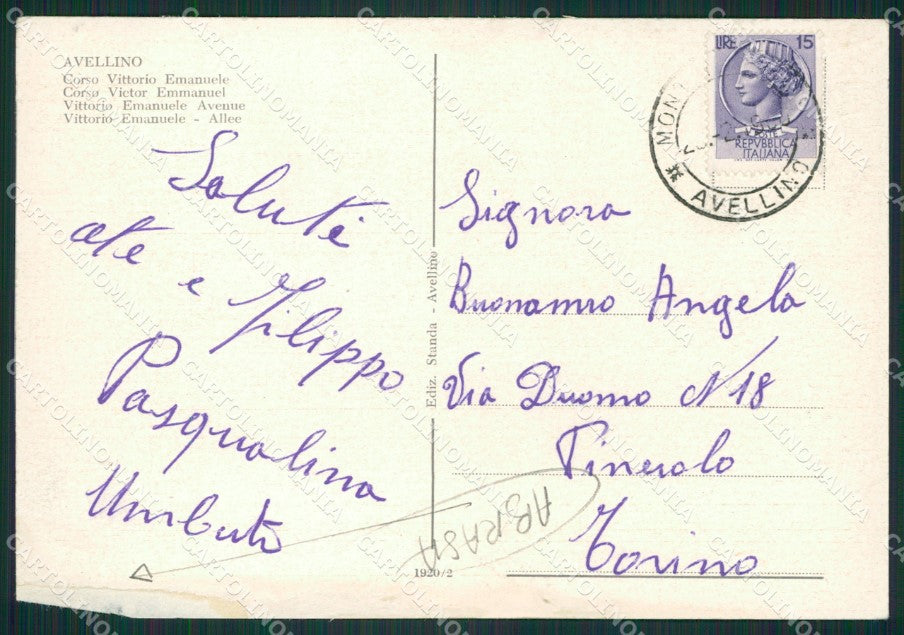 AVELLINO
Corso Vittorio Emanuele
Corso Victor Emmanuel
Vittorio Emanuele Avenue
Vittorio Emanuele - Allee
Saluti
a te e Filippo
Pasqualina
Umberto
Ediz. Standa - Avellino
1920/2
LIRE 15
POSTE
REPVBBLICA
ITALIANA
AVELLINO
Signora
Buonamno Angela
Via Duomo N 18
Pinerolo
Torino
ABRASA
CARTOLINOMANIA